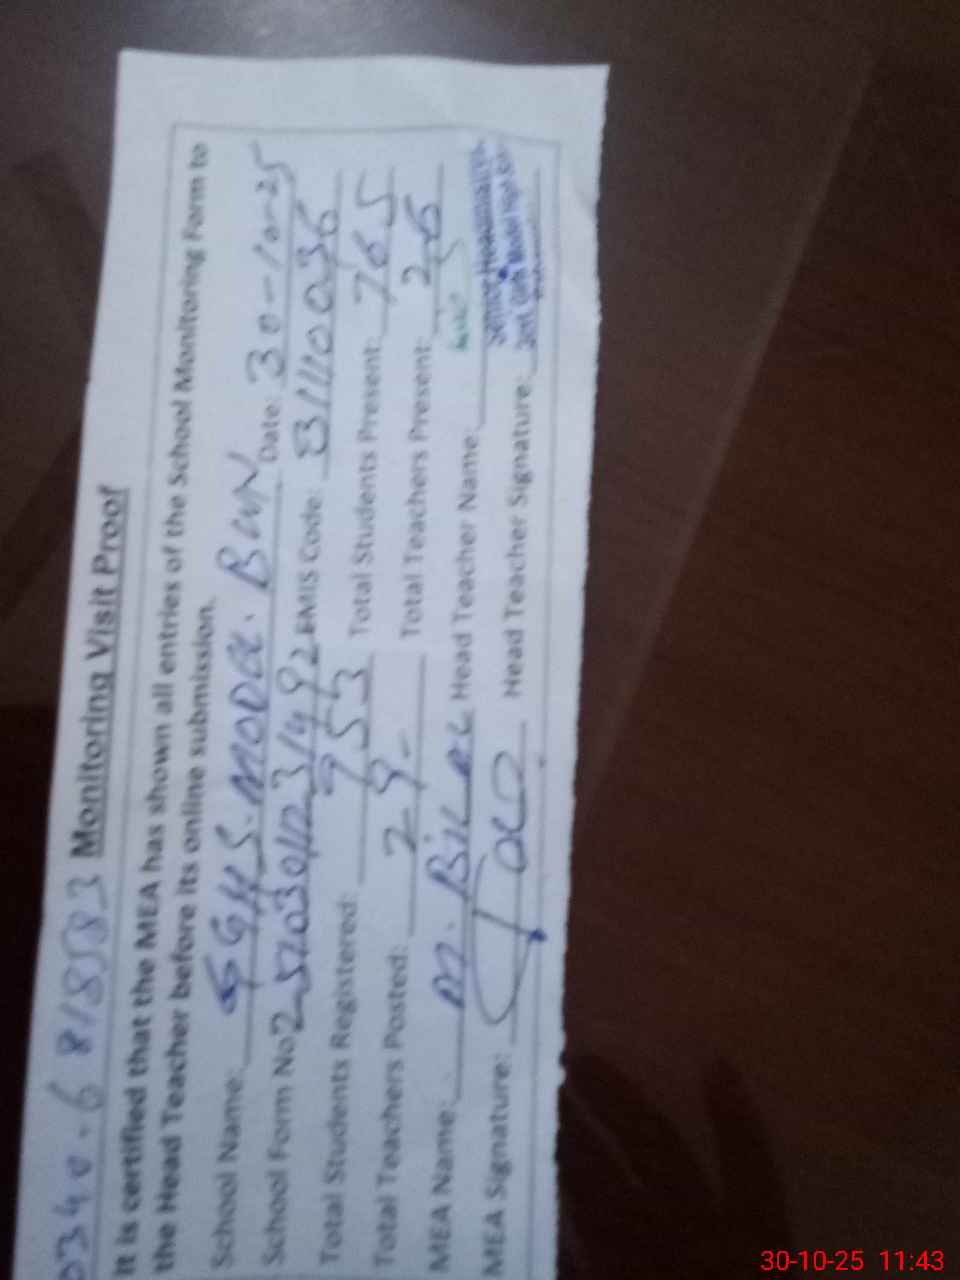 0340-6818583 Monitoring Visit Proof
It is certified that the MEA has shown all entries of the School Monitoring Form to
the Head Teacher before its online submission.
School Name: GGHS. MODEL. BWN Date: 30-10-25
School Form No EMIS Code: 31110036
Total Students Registered: 953 Total Students Present: 765
Total Teachers Posted: 29 Total Teachers Present: 26
MEA Name: M. BILAL Head Teacher Name:
MEA Signature: Head Teacher Signature:
Senior Headmistress
Govt. Girls Model High
30-10-25 11:43